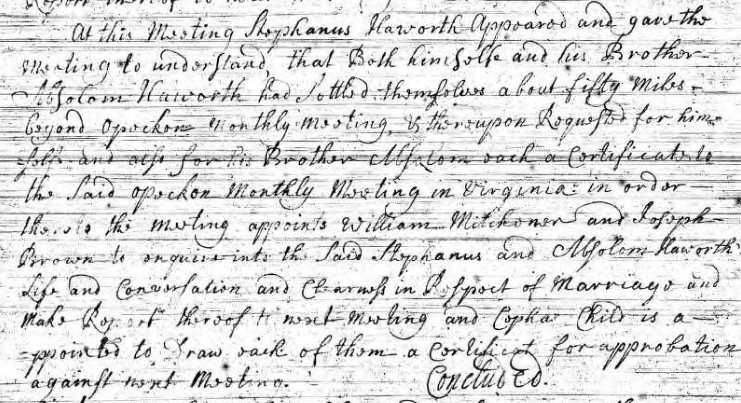 Report thereof to next
At this Meeting Stephanus Haworth Appeared and gave the
Meeting to understand, that Both himselfe and his Brother
Absolom Haworth had Settled themselves about fifty Miles
beyond Opeckon Monthly Meeting, & thereupon Requested for him=
selfe and also for his Brother Absolom each a Certificate to
the Said Opeckon Monthly Meeting in Virginia: in order
thereto the Meeting appoints William Mitchener and Joseph
Brown to enquire into the Said Stephanus and Absolom Haworth
Life and Conversation and Clearness in Respect of Marriage and
Make Report thereof to next Meeting and Cephas Child is a=
ppointed to Draw each of them a Certificat for approbation
against next Meeting. Concluded.